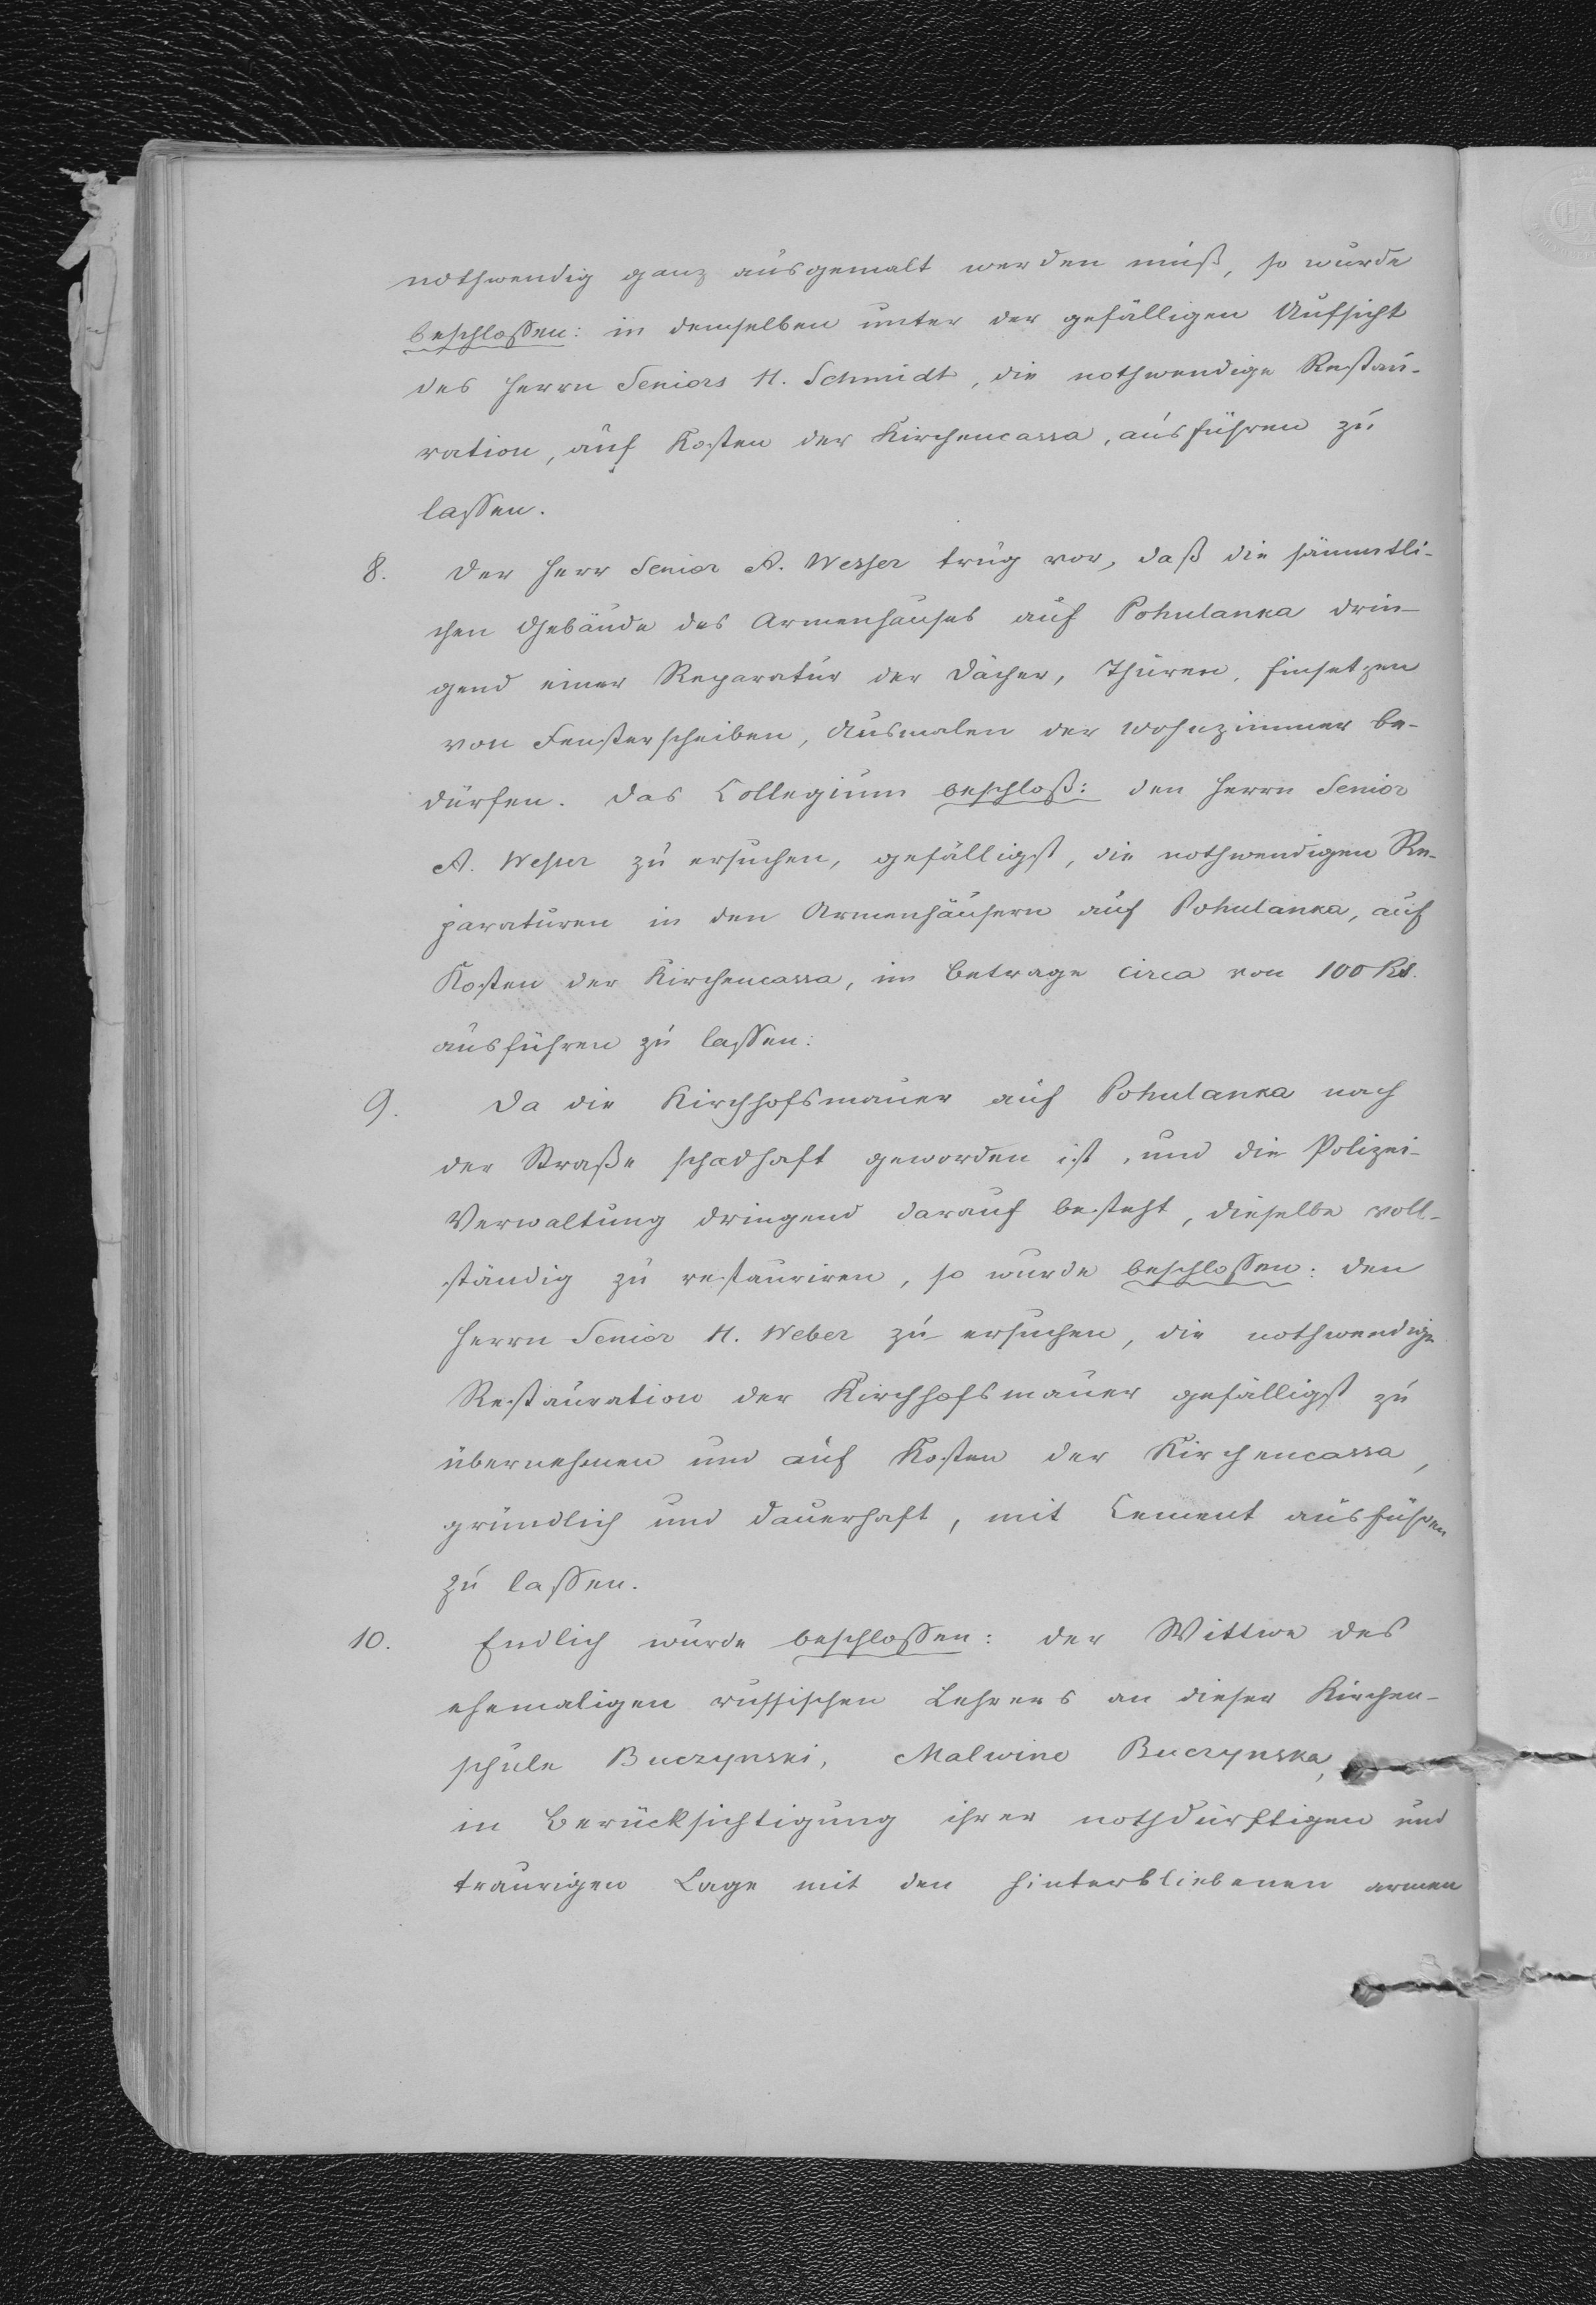 nothwendig ganz ausgemalt werden muß, so wurde
beschlossen: in demselben unter der gefälligen Aufsicht
des Herrn Seniors H. Schmidt, die nothwendige Restau-
ration, auf Kosten der Kirchencassa, ausführen zu
lassen.
8. Der Herr Senior A. Wesser trug vor, daß die sämmtli-
chen Gebäude des Armenhauses auf Pohulanka drin-
gend einer Reparatur der Dächer, Thüren, Einsetzen
von Fensterscheiben, Ausmalen der Wohnzimmer be-
dürfen. Das Collegium beschloß: den Herrn Senior
A. Wesser zu ersuchen, gefälligst, die nothwendigen Re-
paraturen in den Armenhäusern auf Pohulanka, auf
Kosten der Kirchencassa, im Betrage circa von 100 Rs.
ausführen zu lassen.
9. Da die Kirchhofsmauer auf Pohulanka nach
der Straße schadhaft geworden ist, und die Polizei-
Verwaltung dringend darauf besteht, dieselbe voll-
ständig zu restauriren, so wurde beschlossen: den
Herrn Senior H. Weber zu ersuchen, die nothwendige
Restauration der Kirchhofsmauer gefälligst zu
übernehmen und auf Kosten der Kirchencassa,
gründlich und dauerhaft, mit Cement ausführen
zu lassen.
10. Endlich wurde beschlossen: der Wittwe des
ehemaligen russischen Lehrers an dieser Kirchen-
schule Buczynski, Malwine Buczynska,
in Berücksichtigung ihrer nothdürftigen und
traurigen Lage mit den hinterbliebenen armen